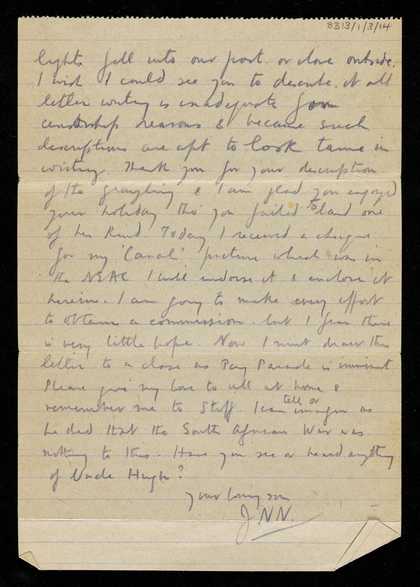 8313/1/3/14
lights fell into our post or close outside.
I wish I could see you to describe it all
letter writing is inadequate for
censorship reasons & because such
descriptions are apt to look tame in
writing. Thank you for your description
of the grayling & I am glad you enjoyed
your holiday tho' you failed to land one
of her kind. Today I received a cheque
for my 'Canal' picture which was in
the NEAC I will endorse it & enclose it
herein. I am going to make every effort
to obtain a commission. but I fear there
is very little hope. Now I must draw this
letter to a close as Pay Parade is imminent
Please give my love to all at home &
remember me to Staff. I can tell or imagine as
he did that the South African War was
nothing to this. Have you see or heard anything
of Uncle Hugh?
Your loving son
J.N.N.